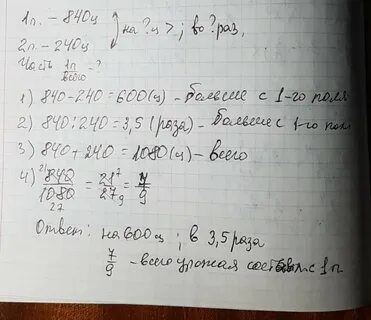 1п. – 840ц
на ?ц >; во ?раз,
2п. – 240ц
Часть 1п/всего – ?
1) 840-240=600(ц) – больше с 1-го поля
2) 840:240=3,5 (раза) – больше с 1-го пол
3) 840+240=1080(ц) – всего
4) 840/1080 = 21/27 = 7/9
Ответ: на 600ц; в 3,5 раза
7/9 – всего урожая с 1п